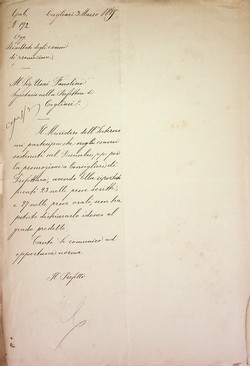 Gab.
Cagliari 3 Marzo 1895
N. 192
Ogg.
Risultato degli esami
di promozione
Al Sig. Usai Paolino
Segretario nella Prefettura di
Cagliari
Il Ministero dell'Interno
mi partecipa che negli esami
sostenuti nel Dicembre pp. per
la promozione a Consigliere di
Prefettura, avendo Ella riportati
punti 23 nelle prove scritte
e 27 nelle prove orali, non ha
potuto dichiararla idoneo al
grado predetto.
Tanto le comunico ad
opportuna norma.
Il Prefetto